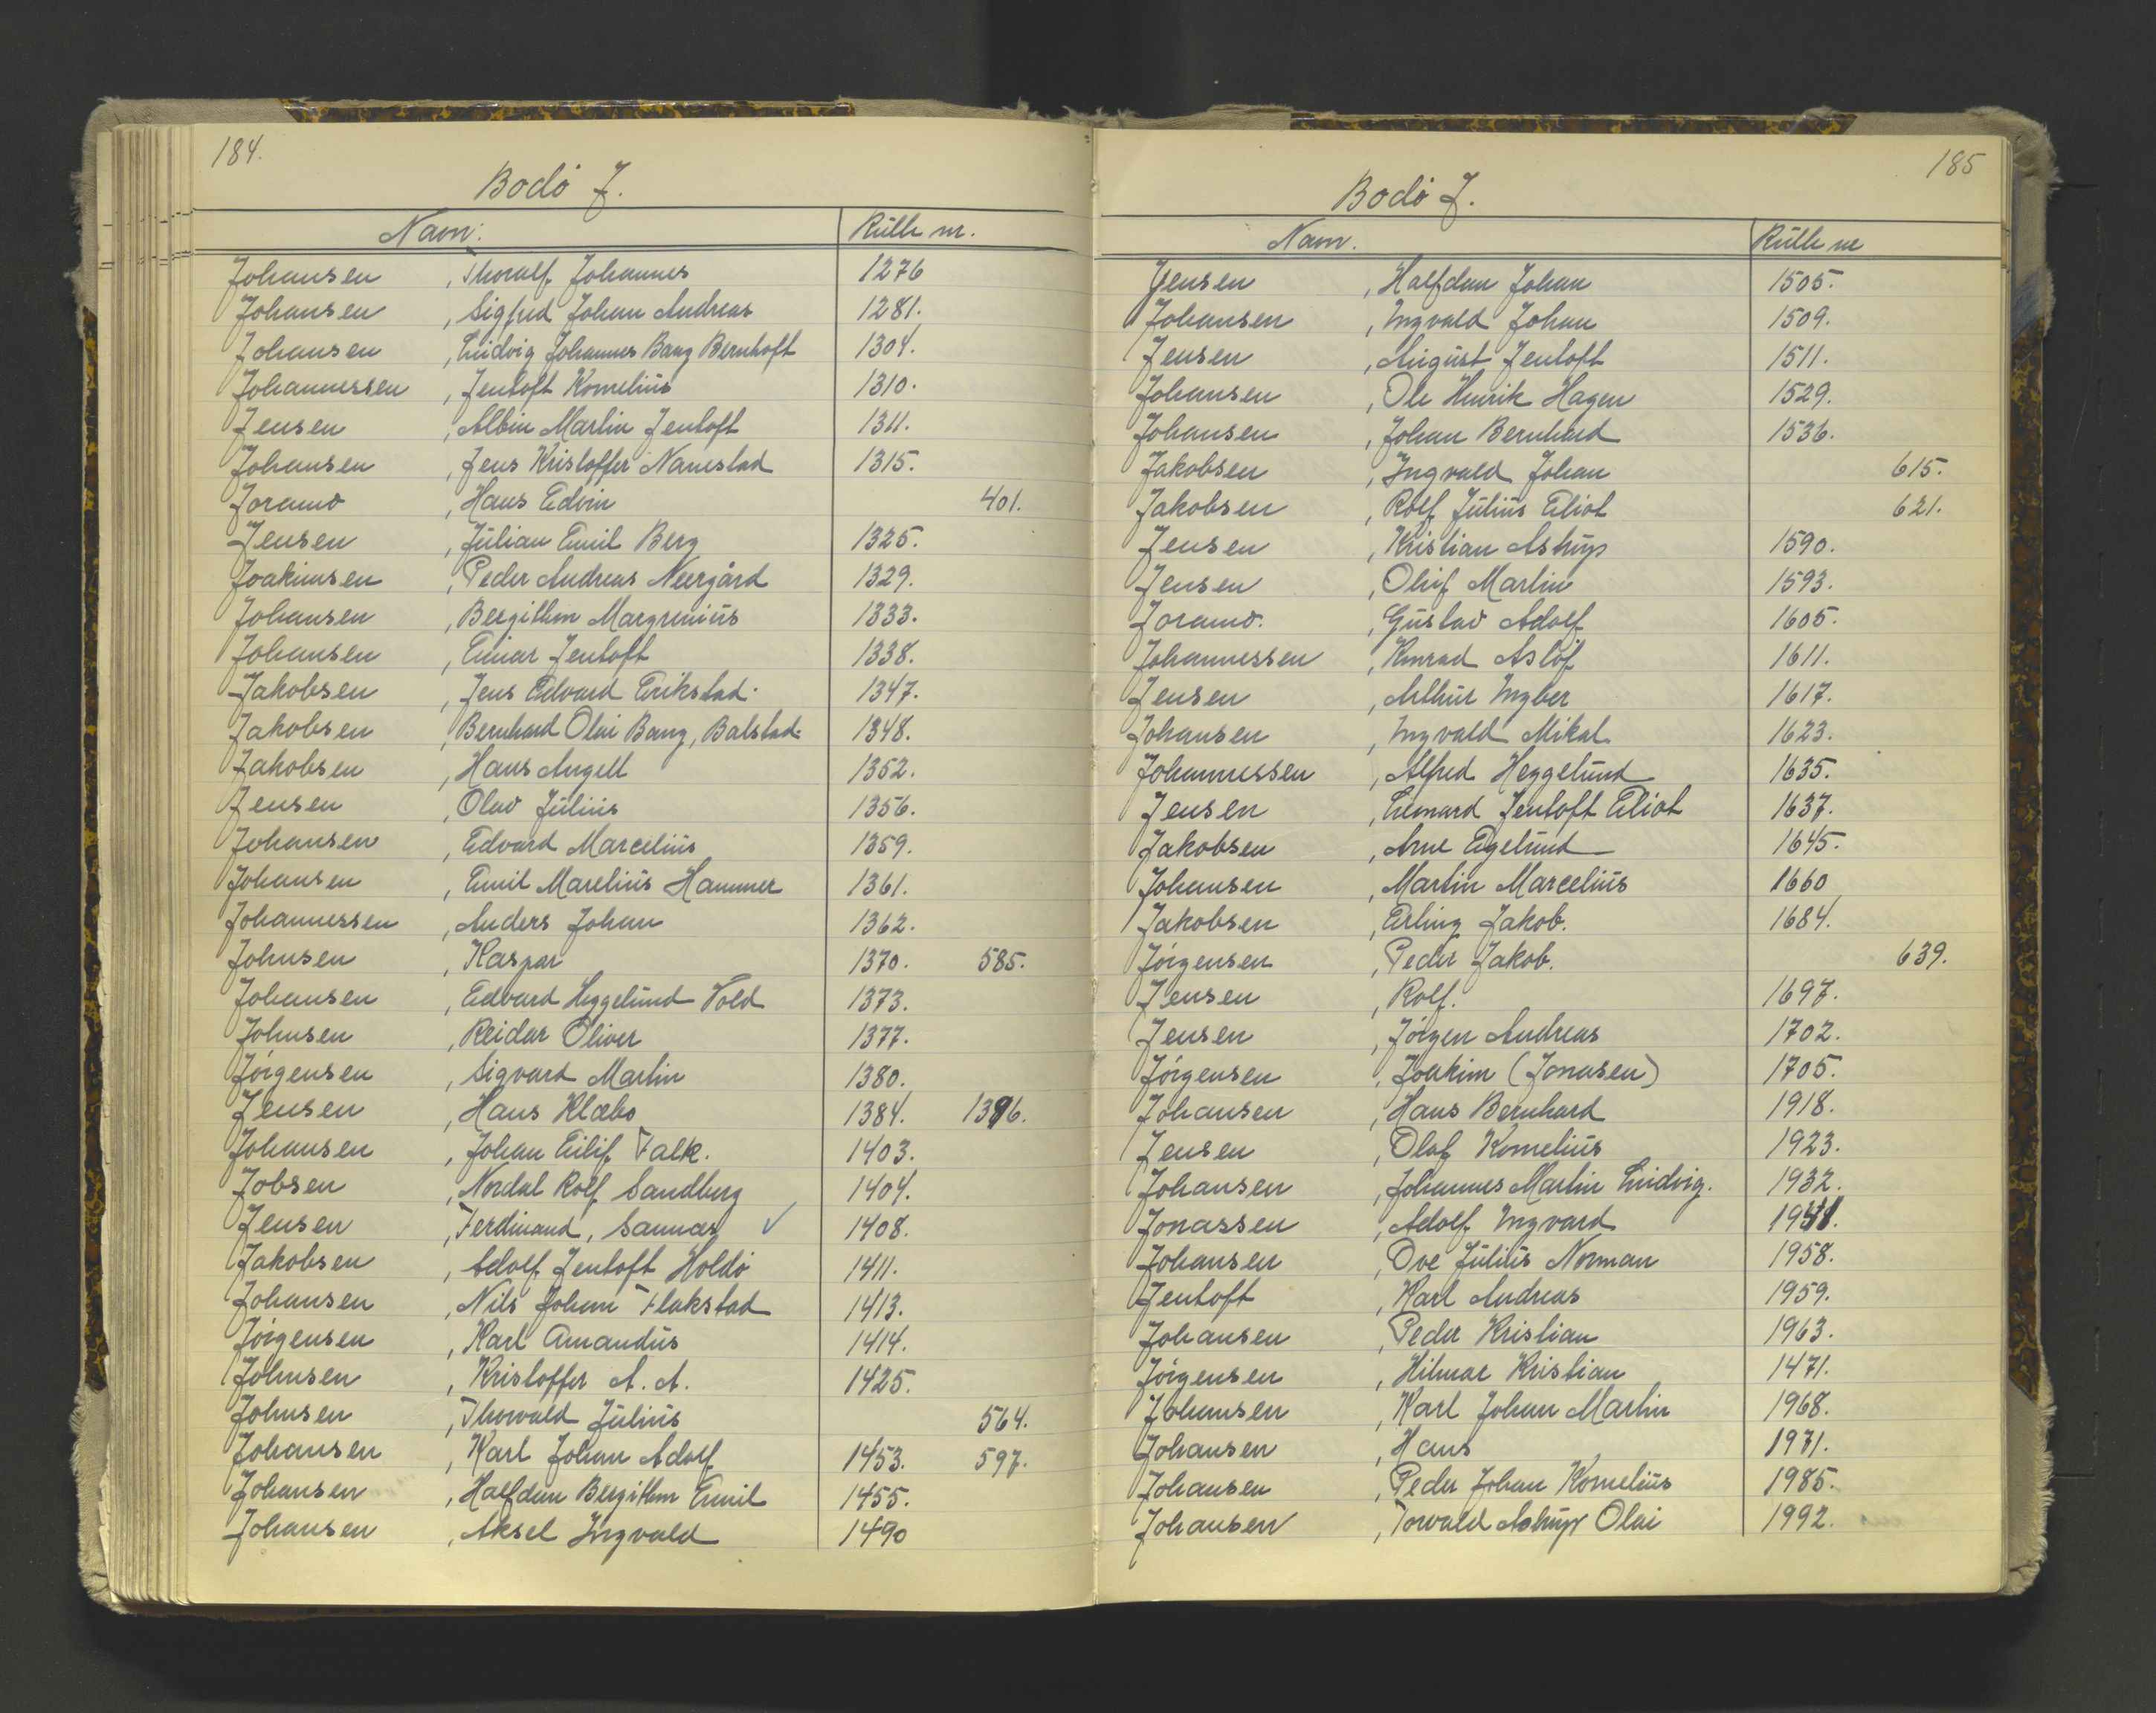 184.
Bodö J.
Navn: Rulle nr.
Johansen , Thoralf Johannes 1276
Johansen , Sigfred Johan Andreas 1281.
Johansen , Ludvig Johannes Bang Bernhoft 1304.
Johannessen , Jentoft Kornelius 1310.
Jensen , Albin Martin Jentoft 1311.
Johansen , Jens Kristoffer Namestad 1315.
Joramo , Hans Edvin 401.
Jensen , Julian Emil Berg 1325.
Joakimsen , Peder Andreas Neergård 1329.
Johansen , Bergithon Margrenius 1333.
Johansen , Einar Jentoft 1338.
Jakobsen , Jens Edvard Erikstad. 1347.
Jakobsen , Bernhard Olai Bang, Balstad. 1348.
Jakobsen , Hans Angell 1352.
Jensen , Olav Julius 1356.
Johansen , Edvard Marcelius 1359.
Johansen , Emil Marelius Hammer 1361.
Johannessen , Anders Johan 1362.
Johnsen , Kaspar 1370. 585.
Johansen , Edvard Heggelund Vold 1373.
Johnsen , Reidar Oliver 1377.
Jörgensen , Sigvard Martin 1380.
Jensen , Hans Klæbo 1384. 1396.
Johansen , Johan Eilif Falk. 1403.
Jobsen , Nordal Rolf Sandberg 1404.
Jensen , Ferdinand, Sannæs ✓ 1408.
Jakobsen , Adolf Jentoft Holdö 1411.
Johansen , Nils Johan Flakstad 1413.
Jörgensen , Karl Amandus 1414.
Johnsen , Kristoffer A. A. 1425.
Johnsen , Thorvald Julius 564.
Johansen , Karl Johan Adolf 1453. 597.
Johansen , Halfdan Bergithon Emil 1455.
Johansen , Aksel Ingvald 1490
185
Bodö J.
Navn. Rulle nr
Jensen , Halfdan Johan 1505.
Johansen , Ingvald Johan 1509.
Jensen , August Jentoft 1511.
Johansen , Ole Henrik Hagen 1529.
Johansen , Johan Bernhard 1536.
Jakobsen , Ingvald Johan 615.
Jakobsen , Rolf Julius Eliot 621.
Jensen , Kristian Astrup 1590.
Jensen , Oluf Martin 1593.
Joramo. , Gustav Adolf 1605.
Johannessen , Konrad Aslöf 1611.
Jensen , Arthur Ingber 1617.
Johansen , Ingvald Mikal 1623.
Johannessen , Alfred Heggelund 1635.
Jensen , Leonard Jentoft Eliot 1637.
Jakobsen , Arne Egelund 1645.
Johansen , Martin Marcelius 1660
Jakobsen , Erling Jakob. 1684.
Jörgensen , Peder Jakob. 639.
Jensen , Rolf. 1697.
Jensen , Jörgen Andreas 1702.
Jörgensen , Joakim (Jonasen) 1705.
Johansen , Hans Bernhard 1918.
Jensen , Olaf Kornelius 1923.
Johansen , Johannes Martin Ludvig. 1932.
Jonassen , Adolf Ingvard
Johansen , Ove Julius Norman 1958.
Jentoft , Karl Andreas 1959.
Johansen , Peder Kristian 1963.
Jörgensen , Hilmar Kristian 1471.
Johansen , Karl Johan Martin 1968.
Johansen , Hans 1971.
Johansen , Peder Johan Kornelius 1985.
Johansen , Torvald Astrup Olai 1992.